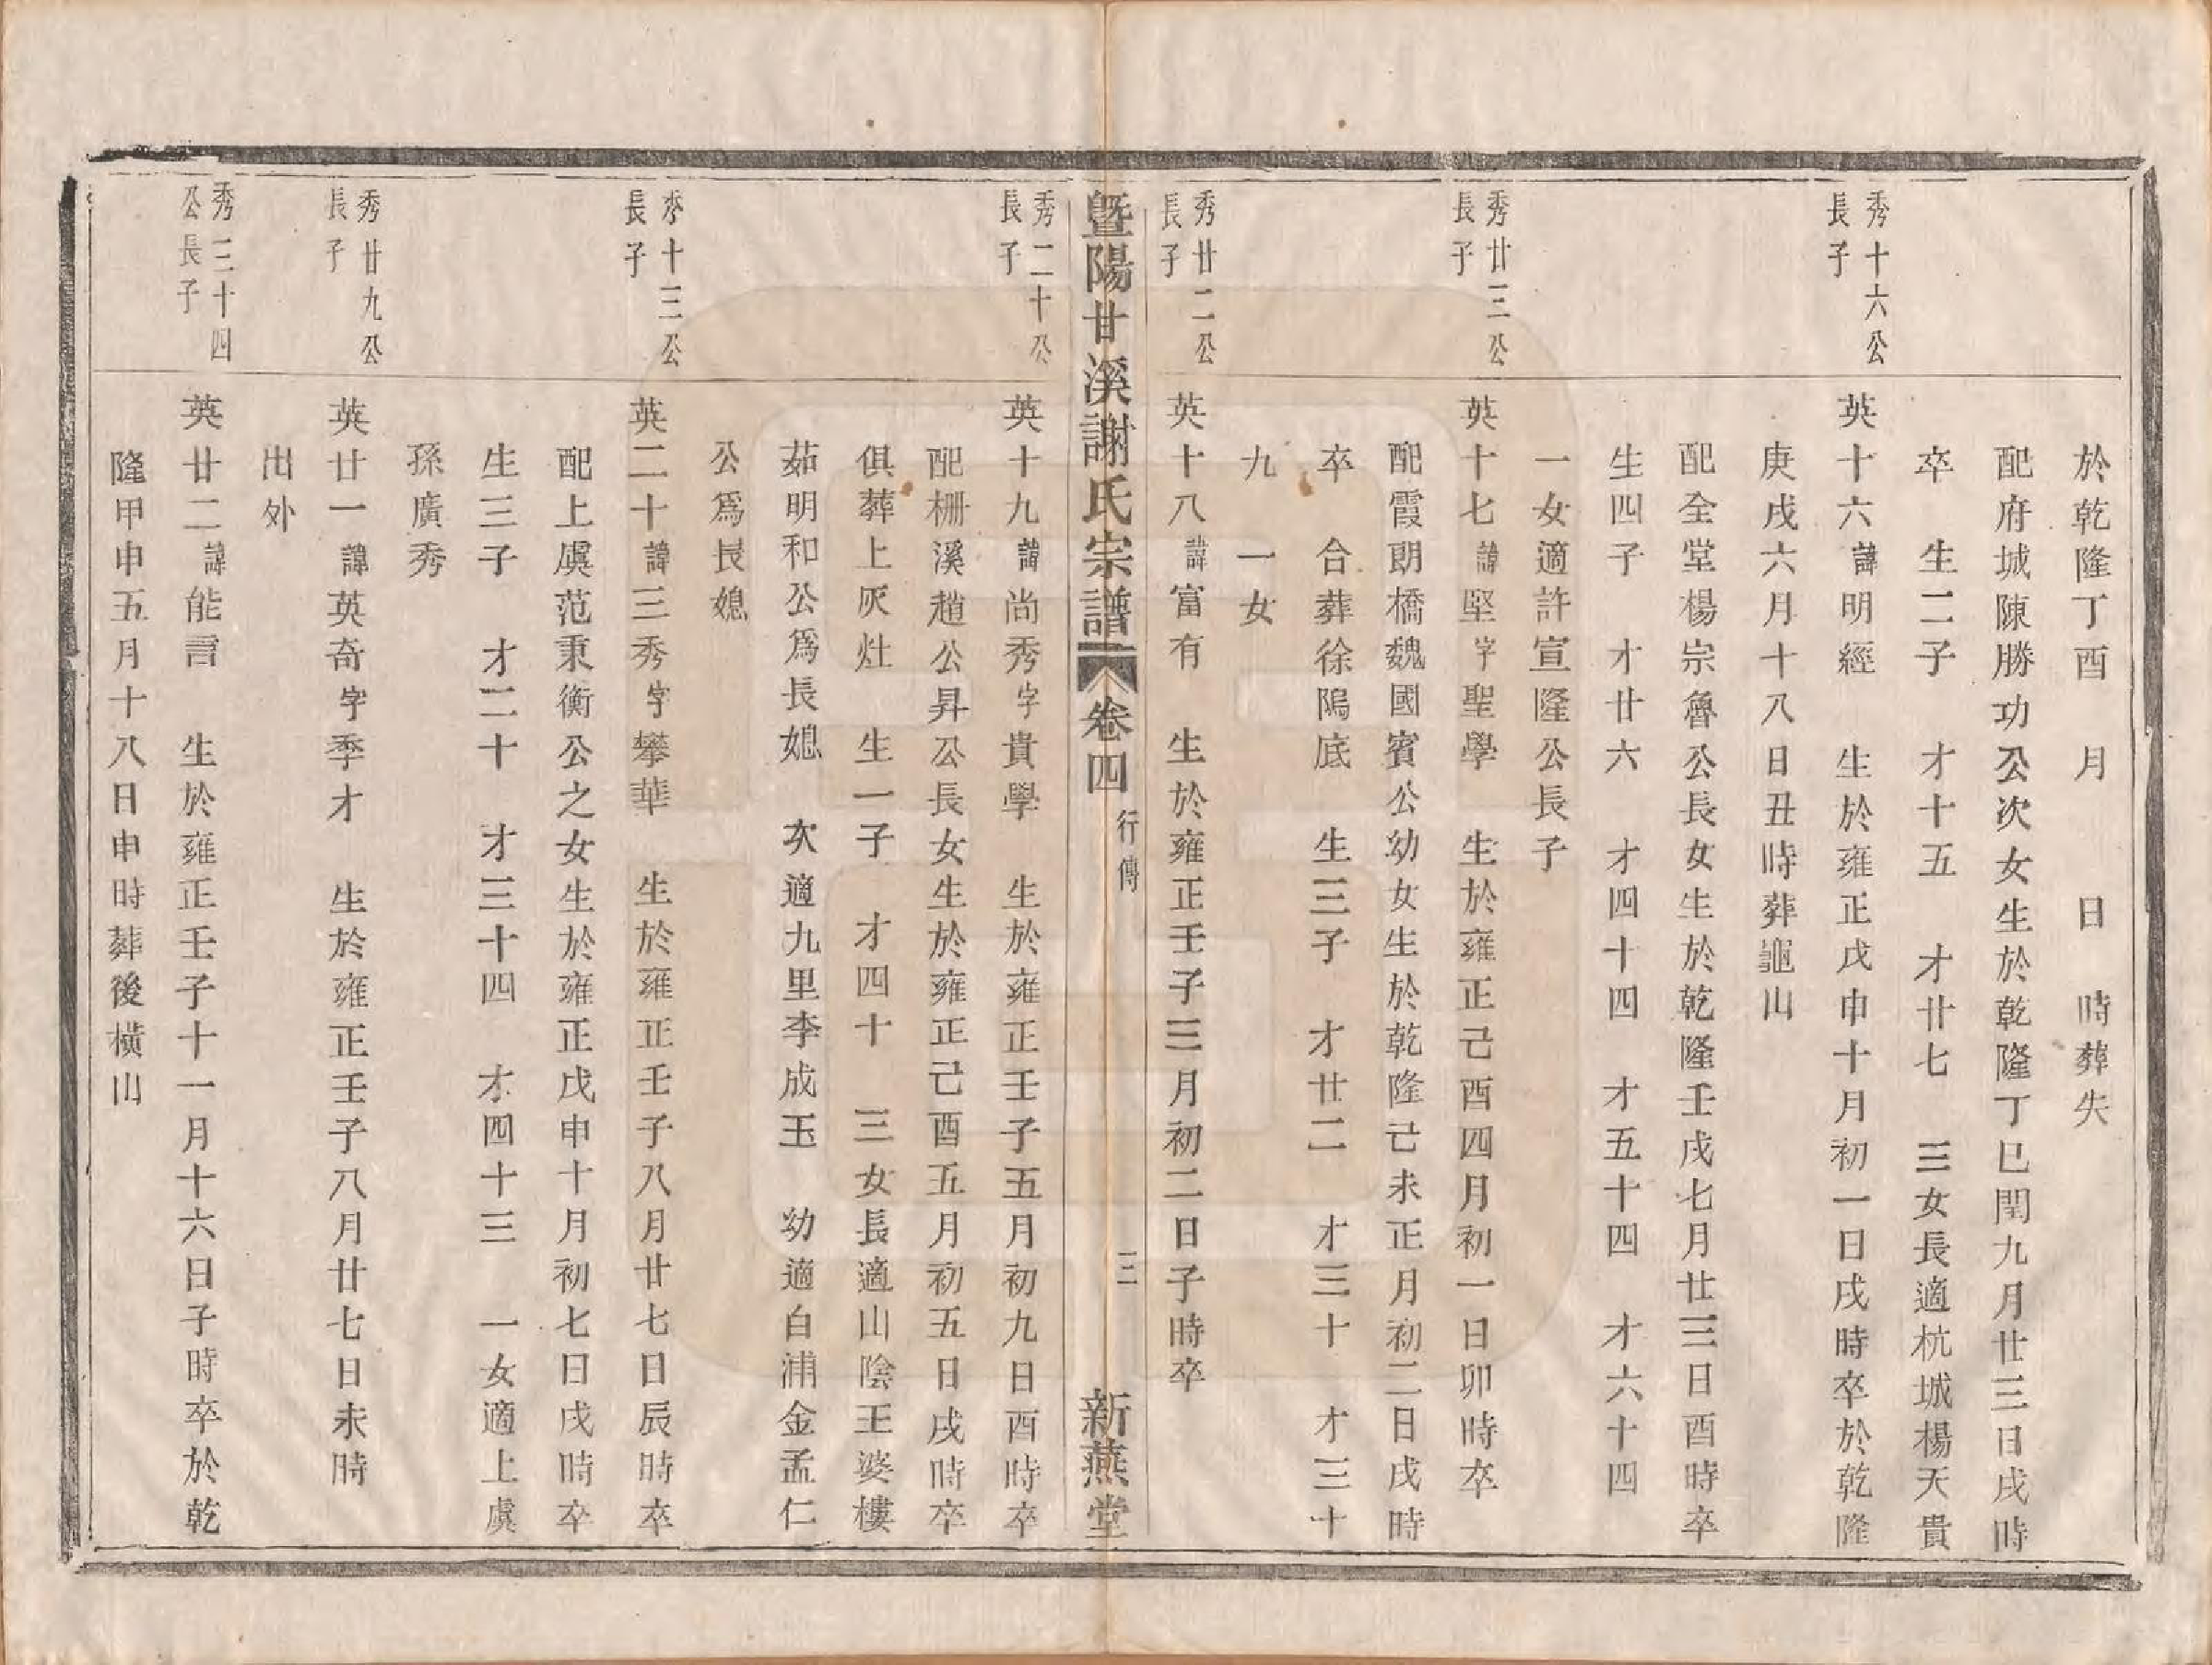 於乾隆丁酉　月　　日　時葬失
配府城陳勝功公次女生於乾隆丁巳閏九月廿三日戌時
卒　生二子　才十五　才廿七　三女長適杭城楊天貴
秀十六公
長子
英十六諱明經　生於雍正戊申十月初一日戌時卒於乾隆
庚戌六月十八日丑時葬龜山
配全堂楊宗魯公長女生於乾隆壬戌七月廿三日酉時卒
生四子　才廿六　才四十四　才五十四　才六十四
一女適許宣隆公長子
秀廿三公
長子
英十七諱堅字聖學　生於雍正己酉四月初一日卯時卒
配霞朗橋魏國賓公幼女生於乾隆己未正月初二日戌時
卒　合葬徐塢底　生三子　才廿二　才三十　才三十
九　一女
秀廿二公
長子
英十八諱富有　生於雍正壬子三月初二日子時卒
暨陽甘溪謝氏宗譜　卷四　行傳　三　新燕堂
秀二十公
長子
英十九諱尚秀字貴學　生於雍正壬子五月初九日酉時卒
配柵溪趙公昇公長女生於雍正己酉五月初五日戌時卒
俱葬上灰灶　生一子　才四十　三女長適山陰王婆樓
茹明和公爲長媳　次適九里李成玉　幼適白浦金孟仁
公爲長媳
秀十三公
長子
英二十諱三秀字攀華　生於雍正壬子八月廿七日辰時卒
配上虞范秉衡公之女生於雍正戊申十月初七日戌時卒
生三子　才二十　才三十四　才四十三　一女適上虞
孫廣秀
秀廿九公
長子
英廿一諱英奇字季才　生於雍正壬子八月廿七日未時
出外
秀三十四
公長子
英廿二諱能言　生於雍正壬子十一月十六日子時卒於乾
隆甲申五月十八日申時葬後橫山